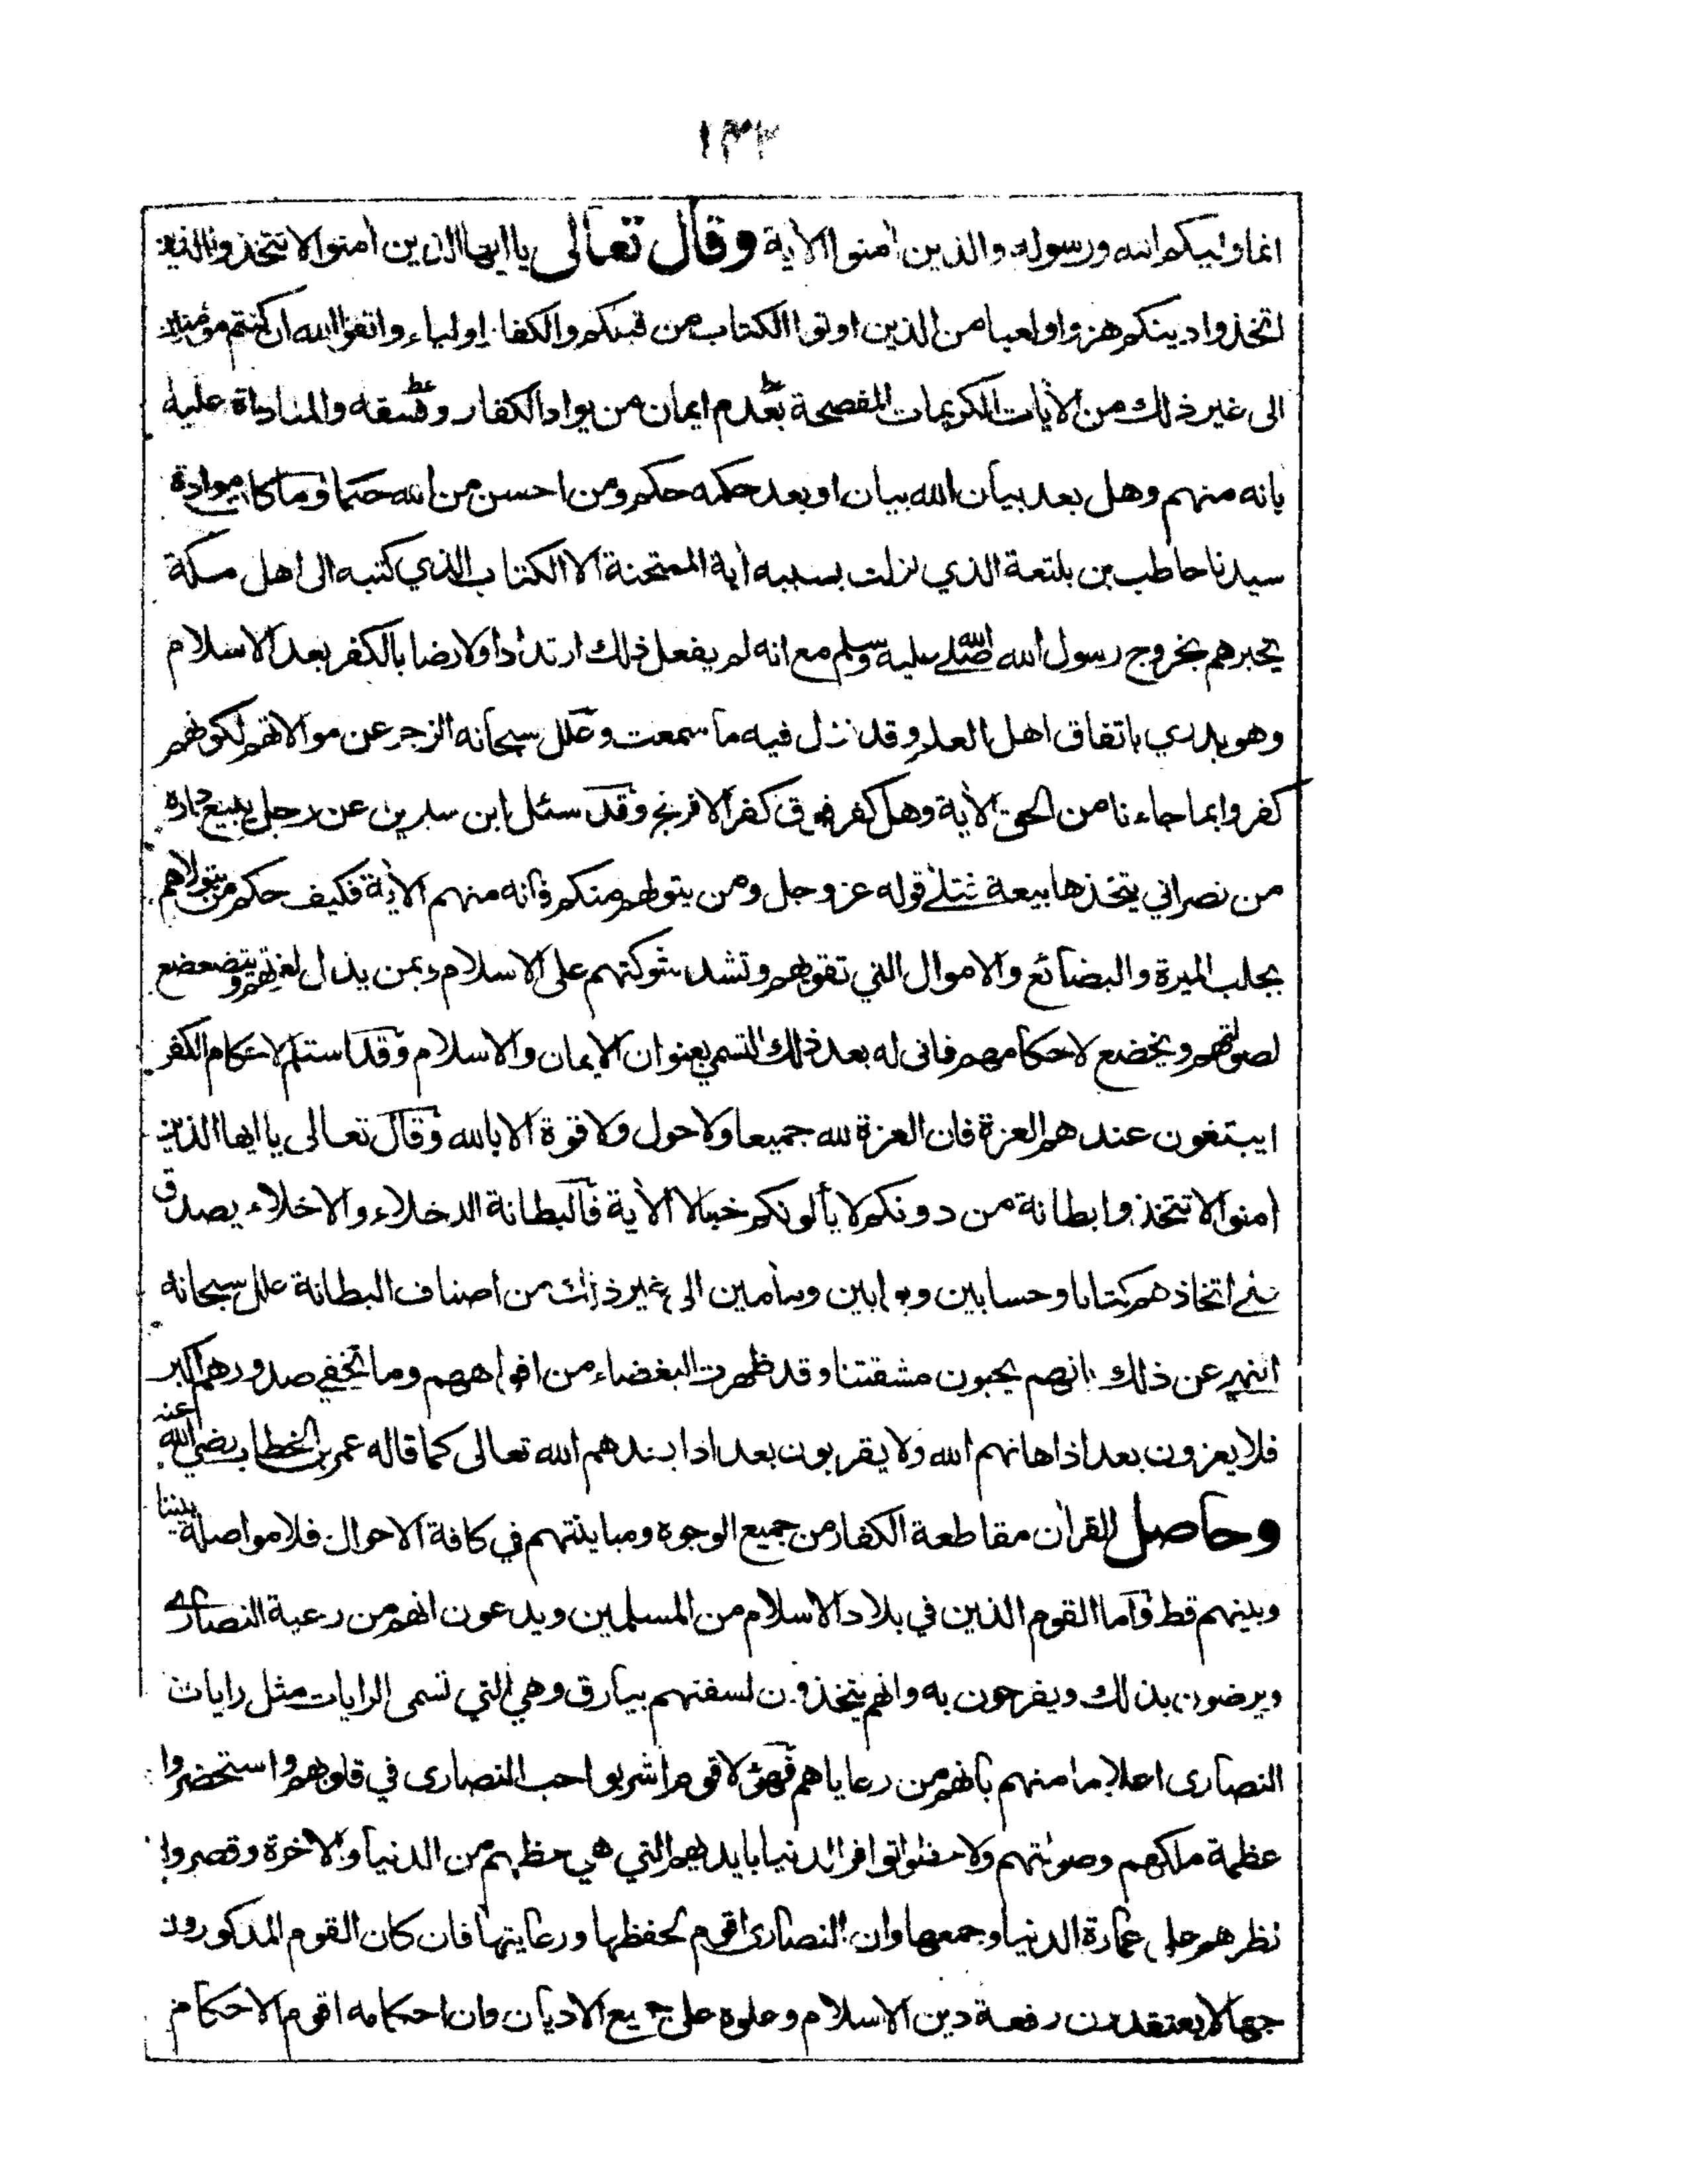 ١٣٢
انما وليكم الله ورسوله والذين امنوا الاية وقال تعالى يا ايها الذين امنوا لا تتخذوا الذين
اتخذوا دينكم هزوا ولعبا من الذين اوتوا الكتاب من قبلكم والكفار اولياء واتقوا الله ان كنتم مؤمنين
الى غير ذلك من الآيات الكريمات المفصحة بعدم ايمان من يواد الكفار وفسقه والمناداة عليه
بانه منهم وهل بعد بيان الله بيان او بعد حكمه حكم ومن احسن من الله حكما وما كان موادة
سيدنا حاطب بن بلتعة الذي نزلت بسببه آية الممتحنة الا الكتاب الذي كتبه الى اهل مكة
يخبرهم بخروج رسول الله صلى الله عليه وسلم مع انه لم يفعل ذلك ارتدادا ولا رضا بالكفر بعد الاسلام
وهو بدري باتفاق اهل العلم وقد نزل فيه ما سمعت وعلل سبحانه الزجر عن موالاتهم لكونهم
كفروا بما جاءنا من الحق الآية وهل كفر فوق كفر الافرنج وقد سئل ابن سيرين عن رجل يبيع داره
من نصراني يتخذها بيعة فتلى قوله عز وجل ومن يتولهم منكم فانه منهم الآية فكيف حكم من يتولاهم
بجلب الميرة والبضائع والاموال التي تقويهم وتشد شوكتهم على الاسلام وبمن يذل لعزتهم ويتضعضع
لصولتهم ويخضع لاحكامهم فانى له بعد ذلك التسمي بعنوان الايمان والاسلام وقد استلم لاحكام الكفر
ايبتغون عندهم العزة فان العزة لله جميعا ولا حول ولا قوة الا بالله وقال تعالى يا ايها الذين
امنوا لا تتخذوا بطانة من دونكم لا يألونكم خبالا الآية فالبطانة الدخلاء والاخلاء يصدق
على اتخاذهم كتابا وحسابين وبوابين وسامين الى غير ذلك من اصناف البطانة علل سبحانه
النهي عن ذلك بانهم يحبون مشقتنا وقد ظهرت البغضاء من افواههم وما تخفي صدورهم اكبر
فلا يعزون بعد اذ اهانهم الله ولا يقربون بعد اذ ابعدهم الله تعالى كما قاله عمر بن الخطاب رضي الله عنه
وحاصل القران مقاطعة الكفار من جميع الوجوه ومباينتهم في كافة الاحوال فلا مواصلة بيننا
وبينهم قط وأما القوم الذين في بلاد الاسلام من المسلمين ويدعون انهم من رعية النصارى
ويرضون بذلك ويفرحون به وانهم يتخذون لسفنهم بيارق وهي التي تسمى الرايات مثل رايات
النصارى اعلاما منهم بانهم من رعاياهم فهؤلا قوم اشربوا حب النصارى في قلوبهم واستحضروا
عظمة ملكهم وصولتهم ولاحظوا توافر الدنيا بايديهم التي هي حظهم من الدنيا والاخرة وقصروا
نظرهم على عمارة الدنيا وجمعها وان النصارى اقوم لحفظها ورعايتها فان كان القوم المذكورون
جهالا يعتقدون رفعة دين الاسلام وعلوه على جميع الاديان وان احكامه اقوم الاحكام